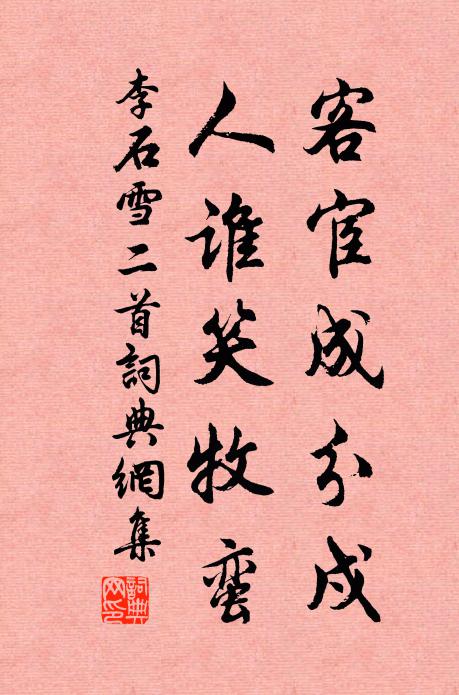 客宦成分戍
人谁笑牧蛮
李石雪二首詞典網集
詞典
网印